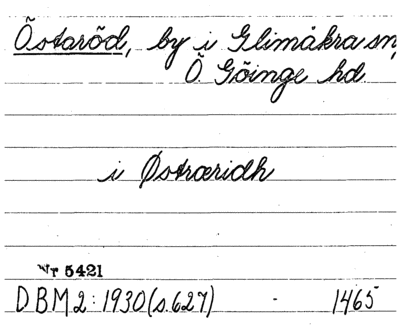 Östaröd, by i Glimåkra sn,
Ö. Göinge hd.
i Østræridh
Nr 5421
DBM 2: 1930 (s. 627) - 1465